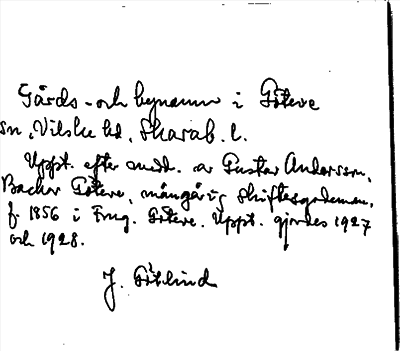 Gårds- och bynamn i Göteve
sn, Vilske hd. Skarab. l.
Uppt. efter medd. av Gustav Andersson,
Backor Göteve, mångårig skiftesgodeman,
f. 1856 i Fmg. Göteve. Uppt. gjordes 1927
och 1928.
J. Götlind